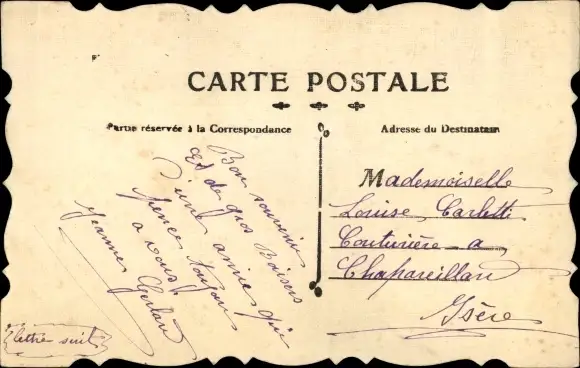 CARTE POSTALE
Partie réservée à la Correspondance
Adresse du Destinataire
Bon souvenir
et de gros Baisers
d'une amie qui
pence toujour
a vous
Jeanne Gerland
lettre suit
Mademoiselle
Louise Carletti
Couturière a
Chapareillan
Isère